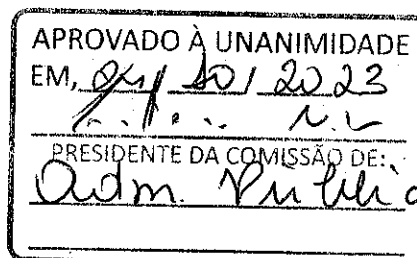 APROVADO À UNANIMIDADE
EM, 24/10/2023
PRESIDENTE DA COMISSÃO DE:
Adm. Públic